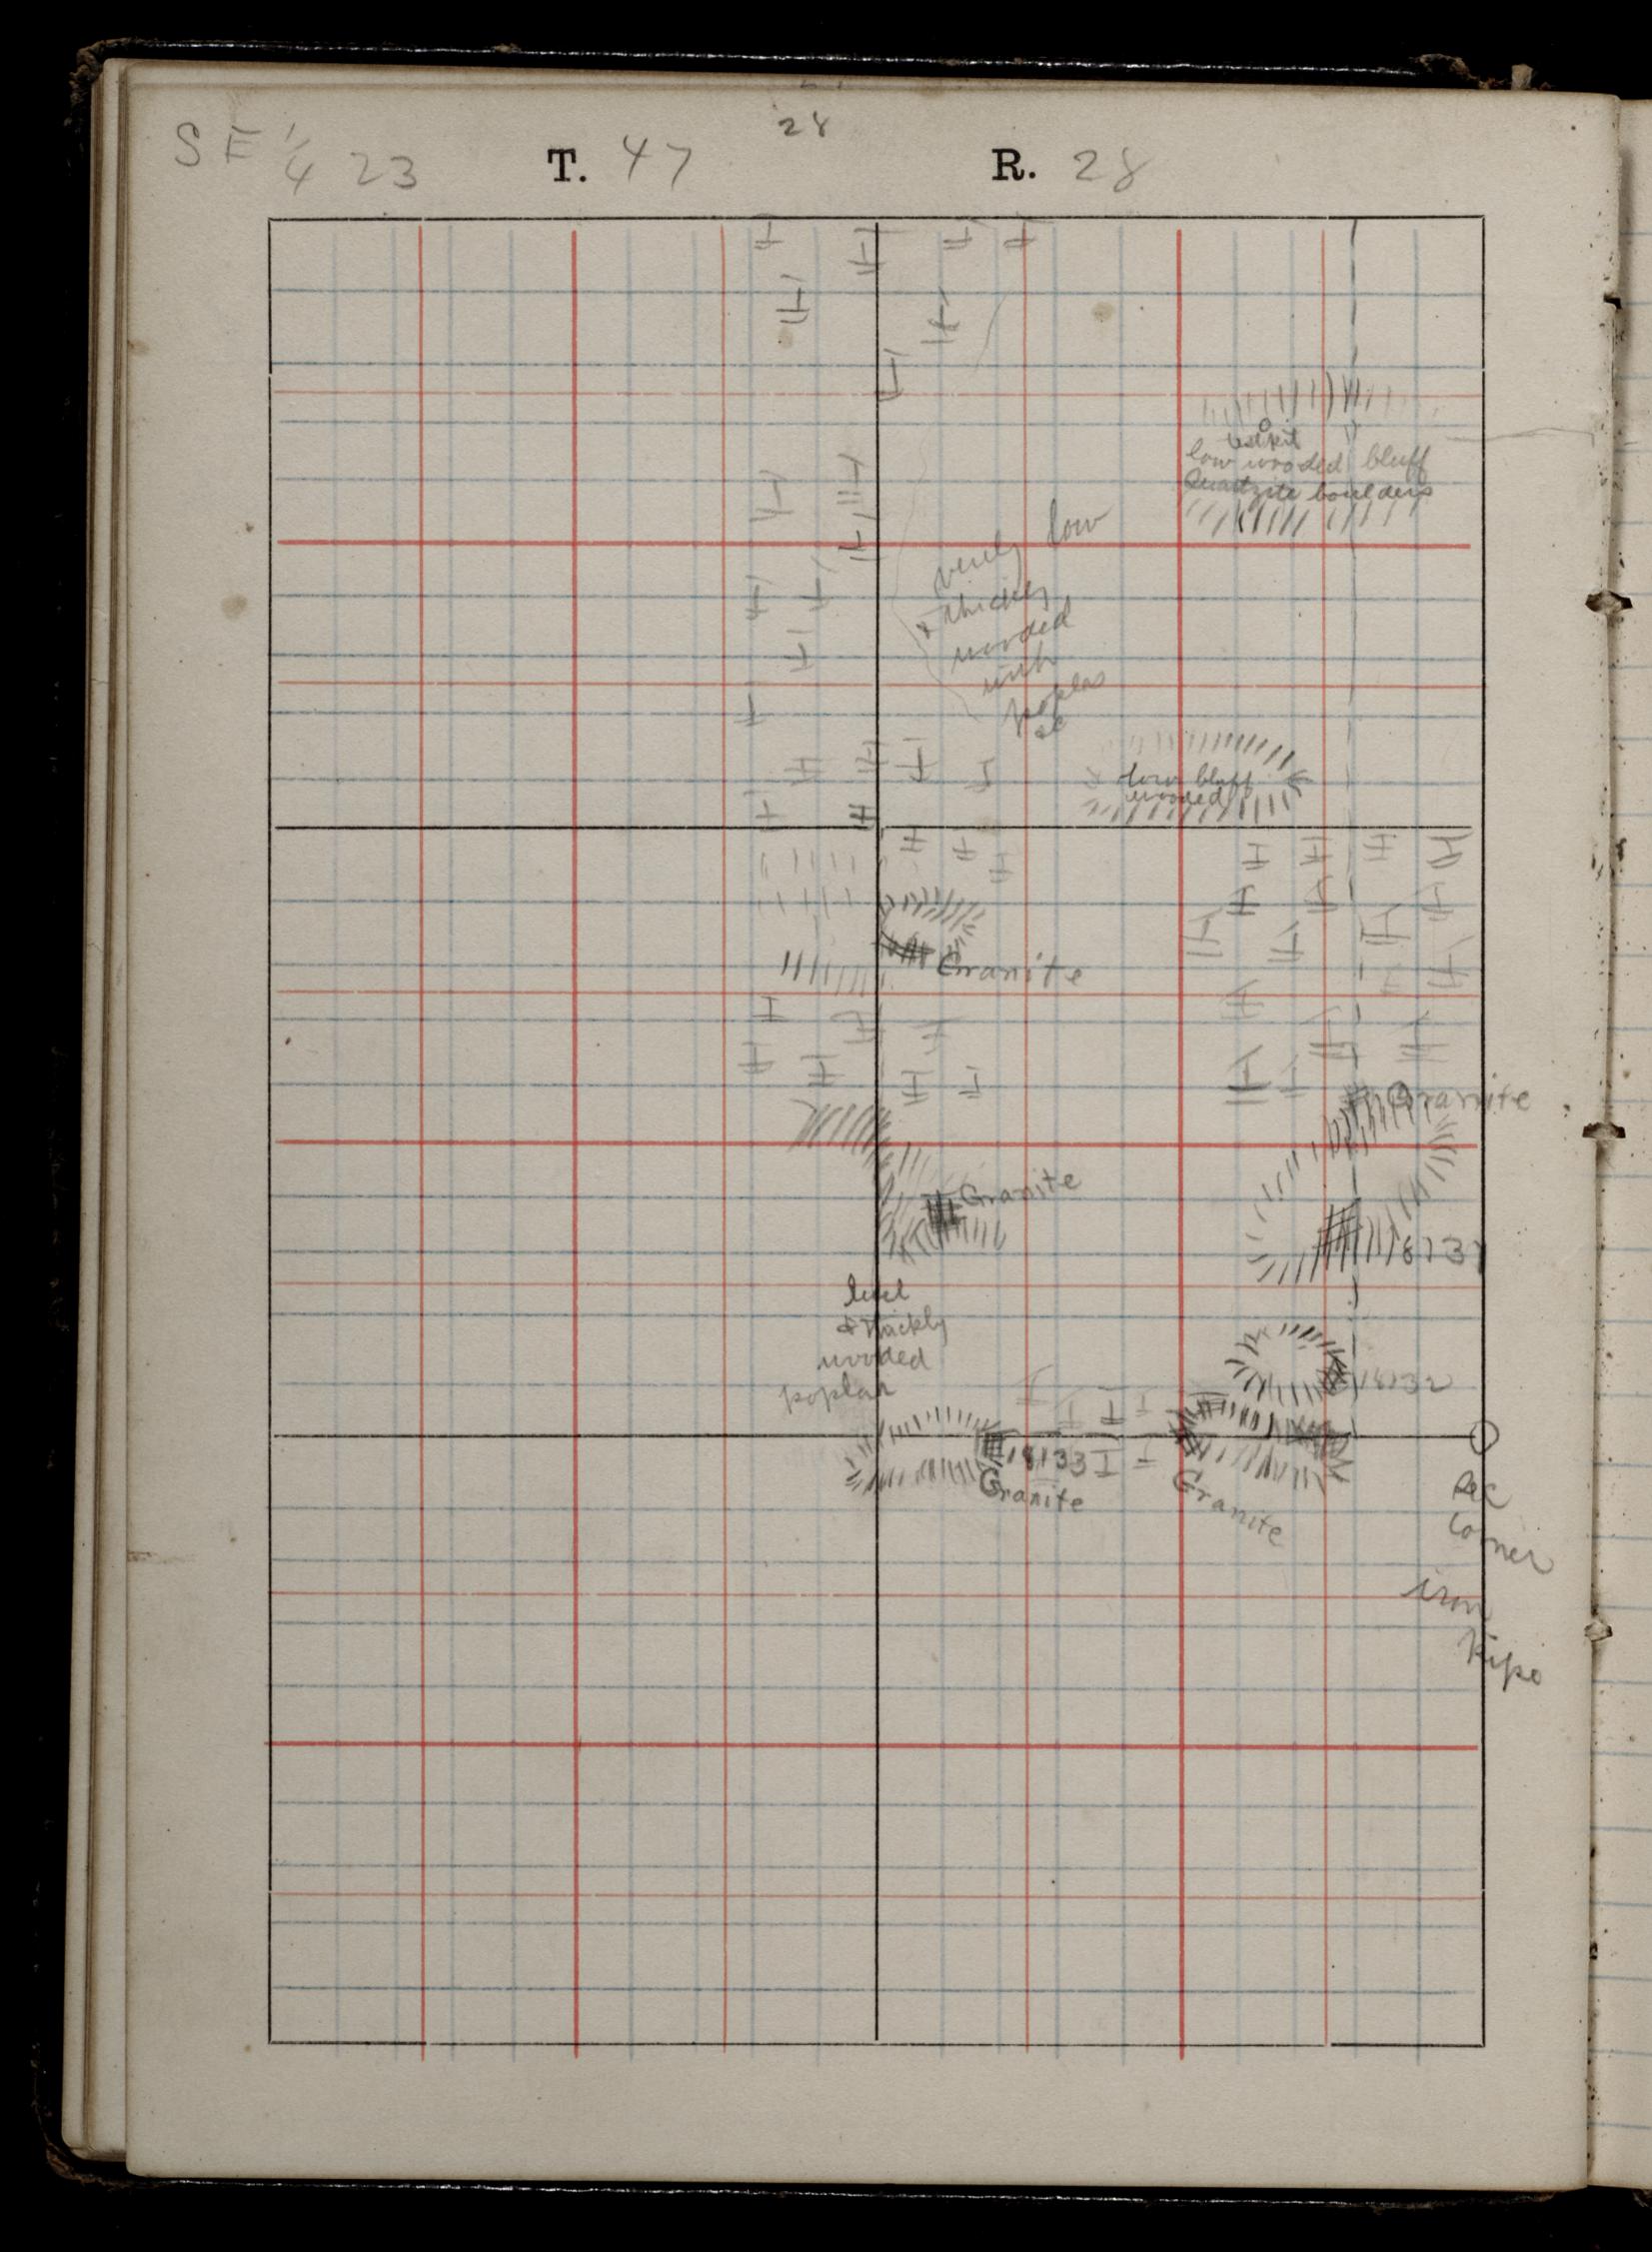 28
SE 1/4 23 T. 47 R. 28
test pit
low wooded bluff
Quartzite boulders
low
& thickly
wooded
with
poplar
low bluff
wooded
Granite
Granite
Granite
1813
level
& thickly
wooded
poplar
18132
18133
Granite
Granite
Sec
Corner
iron
pipe